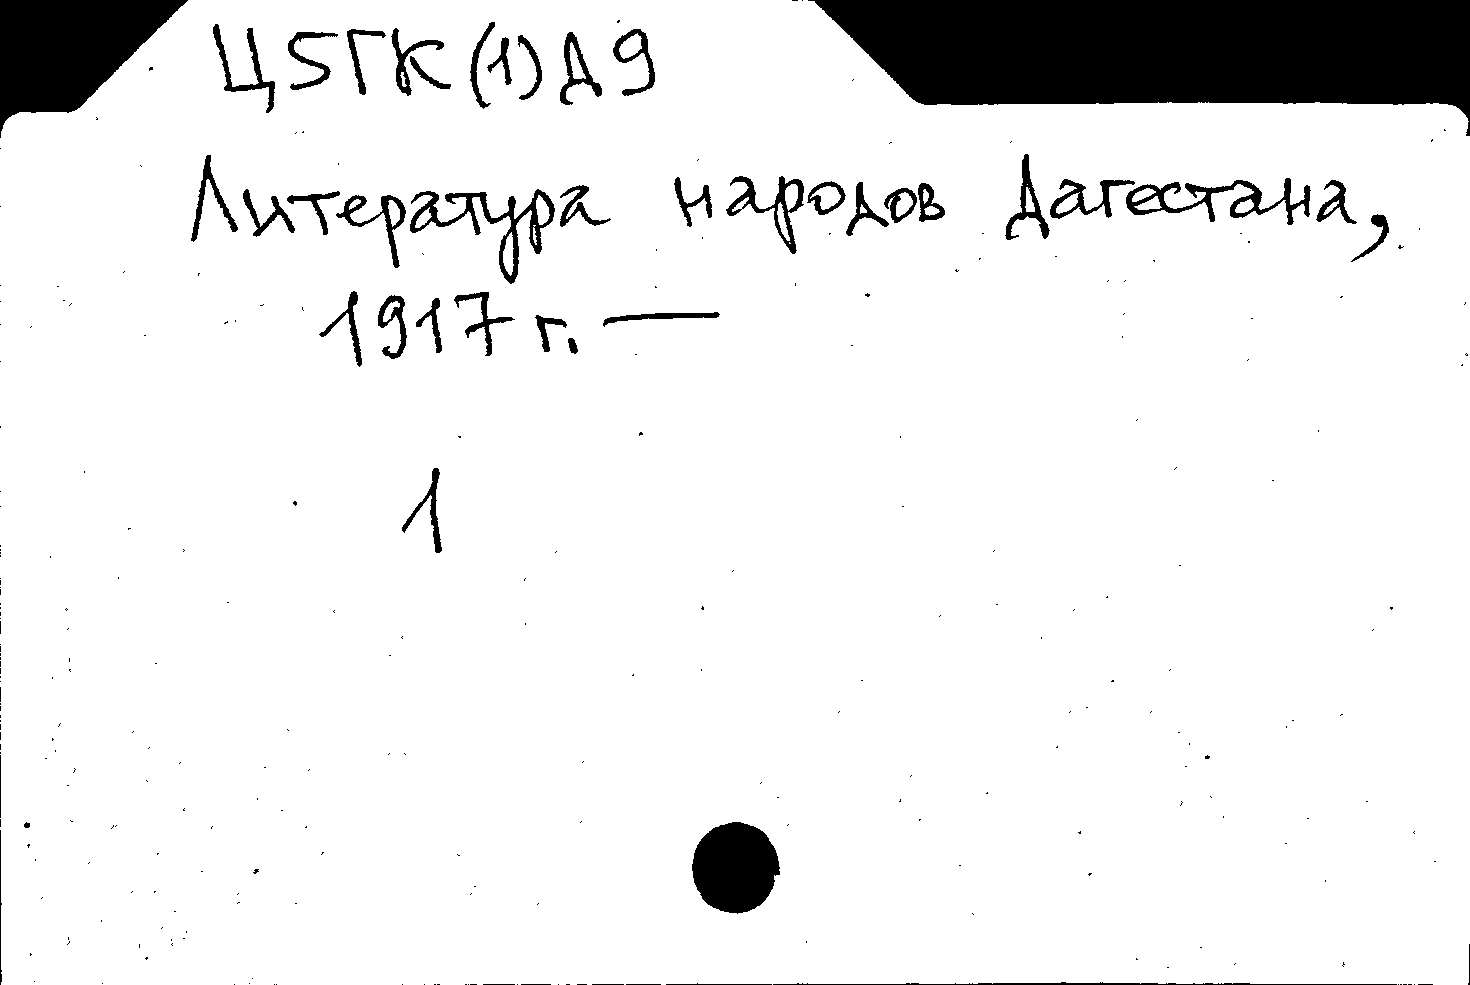 Ц5ГК(1)Д9
Литература народов Дагестана,
1917 г. —
1